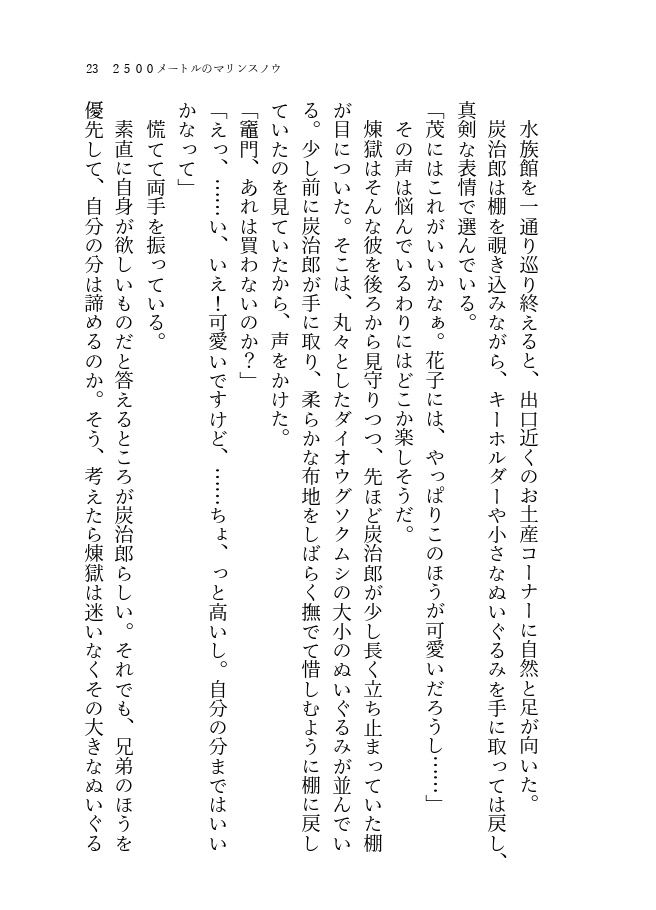 23　２５００メートルのマリンスノウ
　水族館を一通り巡り終えると、出口近くのお土産コーナーに自然と足が向いた。
　炭治郎は棚を覗き込みながら、キーホルダーや小さなぬいぐるみを手に取っては戻し、
真剣な表情で選んでいる。
「茂にはこれがいいかなぁ。花子には、やっぱりこのほうが可愛いだろうし……」
　その声は悩んでいるわりにはどこか楽しそうだ。
　煉獄はそんな彼を後ろから見守りつつ、先ほど炭治郎が少し長く立ち止まっていた棚
が目についた。そこは、丸々としたダイオウグソクムシの大小のぬいぐるみが並んでい
る。少し前に炭治郎が手に取り、柔らかな布地をしばらく撫でて惜しむように棚に戻し
ていたのを見ていたから、声をかけた。
「竈門、あれは買わないのか？」
「えっ、……い、いえ！可愛いですけど、……ちょ、っと高いし。自分の分まではいい
かなって」
　慌てて両手を振っている。
　素直に自身が欲しいものだと答えるところが炭治郎らしい。それでも、兄弟のほうを
優先して、自分の分は諦めるのか。そう、考えたら煉獄は迷いなくその大きなぬいぐる